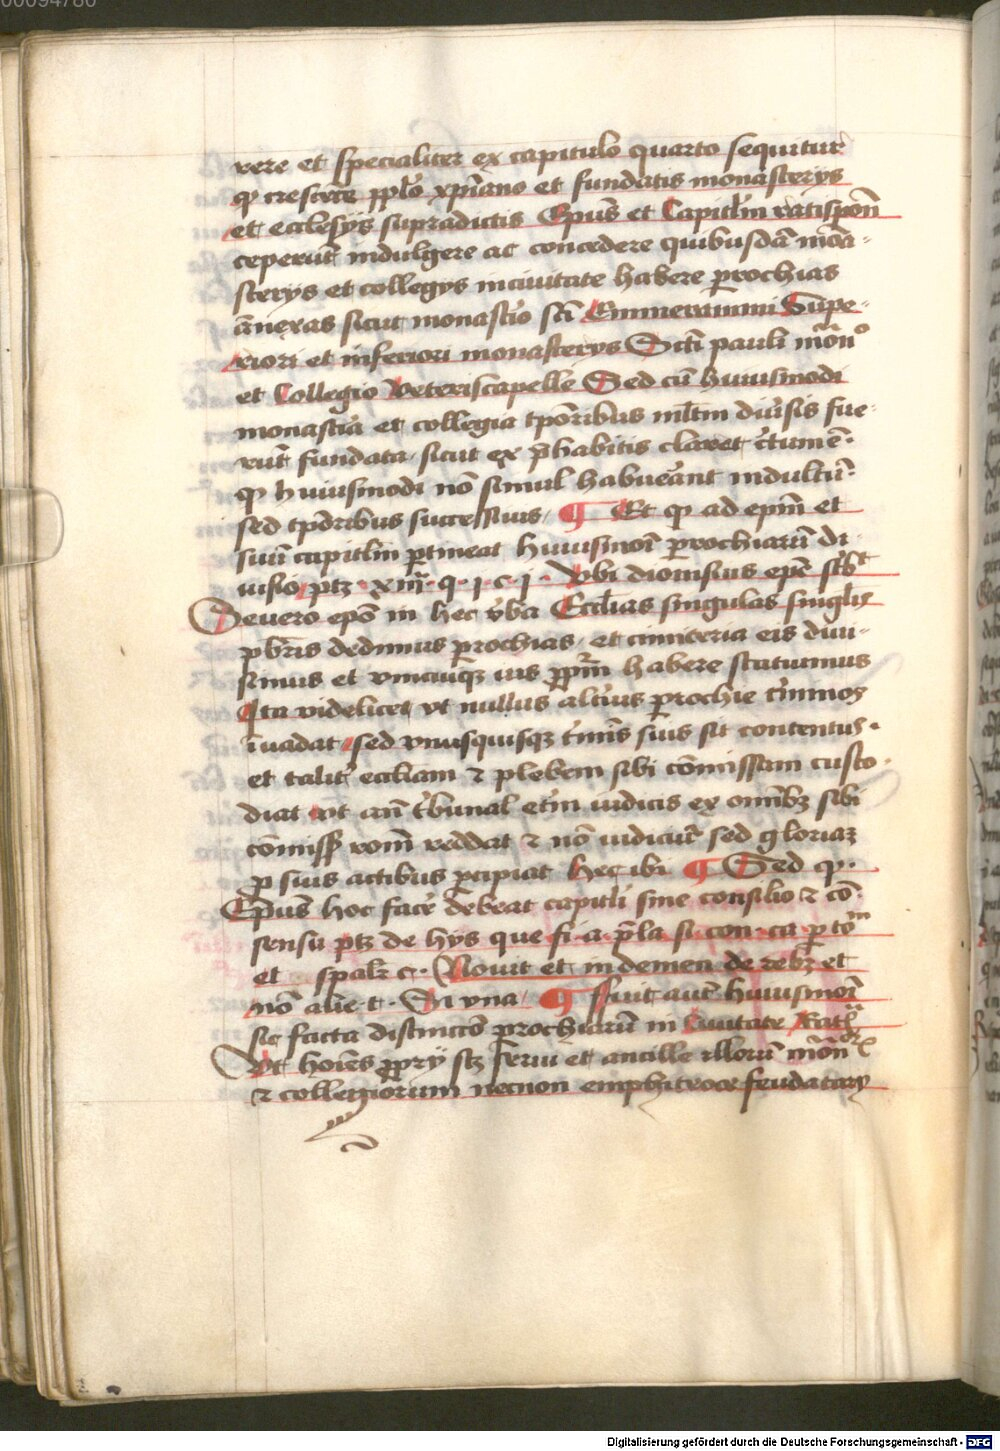 00094780
vere et specialiter ex capitulo quarto sequitur
qp crescete pplo xpiano et fundatis monasterys
et ecclesys supradictis Epus et Capitlm ratisponn
ceperut indulgere ac concedere quibusda mona-
sterys et collegys in ciuitate habere parochias
anexas sicut monastio sti Emmerammi Supe-
riori et inferiori monasterys Scti pauli mon
et Collegio veteriscapelle Sed cu huiusmodi
monastia et collegia tporibus mltm diusis fue-
rut fundata sicut ex phabitis claret ctum e.
qp huiusmodi no simul habueant indultu
sed tporibus successiuis ¶ Et qp ad epm et
suu capitlm ptineat huiusmoi parochiaru di
uisio ptz xiij. q. j. c. j. Vbi dionisius epe scbt
Seuero epo in hec vba Ecclias singulas singlis
pbris dedimus parochias et cimiteria eis diui-
simus et vnicuiqz ius pprm habere statuimus
Ita videlicet vt nullus altius parochie tminos
iuadat sed vnusquisqz tmis suis sit contentus.
et talit eccliam et plebem sibi comissam custo-
diat vt an tbunal etni iudicis ex omibz sibi
comiss rom reddat et no iudiciu sed gloriaz
p suis actibus pcipiat hec ibi ¶ Sed qp.
Epus hoc face debeat capitli sine consilio et co-
sensu ptz de hys que fi. a. pla. si. con. ca. p to
et spalr c. Nouit et in demen de rebz et
no alie. t. Si vna ¶ ffuit aut huiusmoi
sic facta distinctio parochiaru in Ciuitate Rat
Vt hoies ppry scz serui et ancille illoru mon
et collegiorum necnon emphiteote feudatary
Digitalisierung gefördert durch die Deutsche Forschungsgemeinschaft - DFG